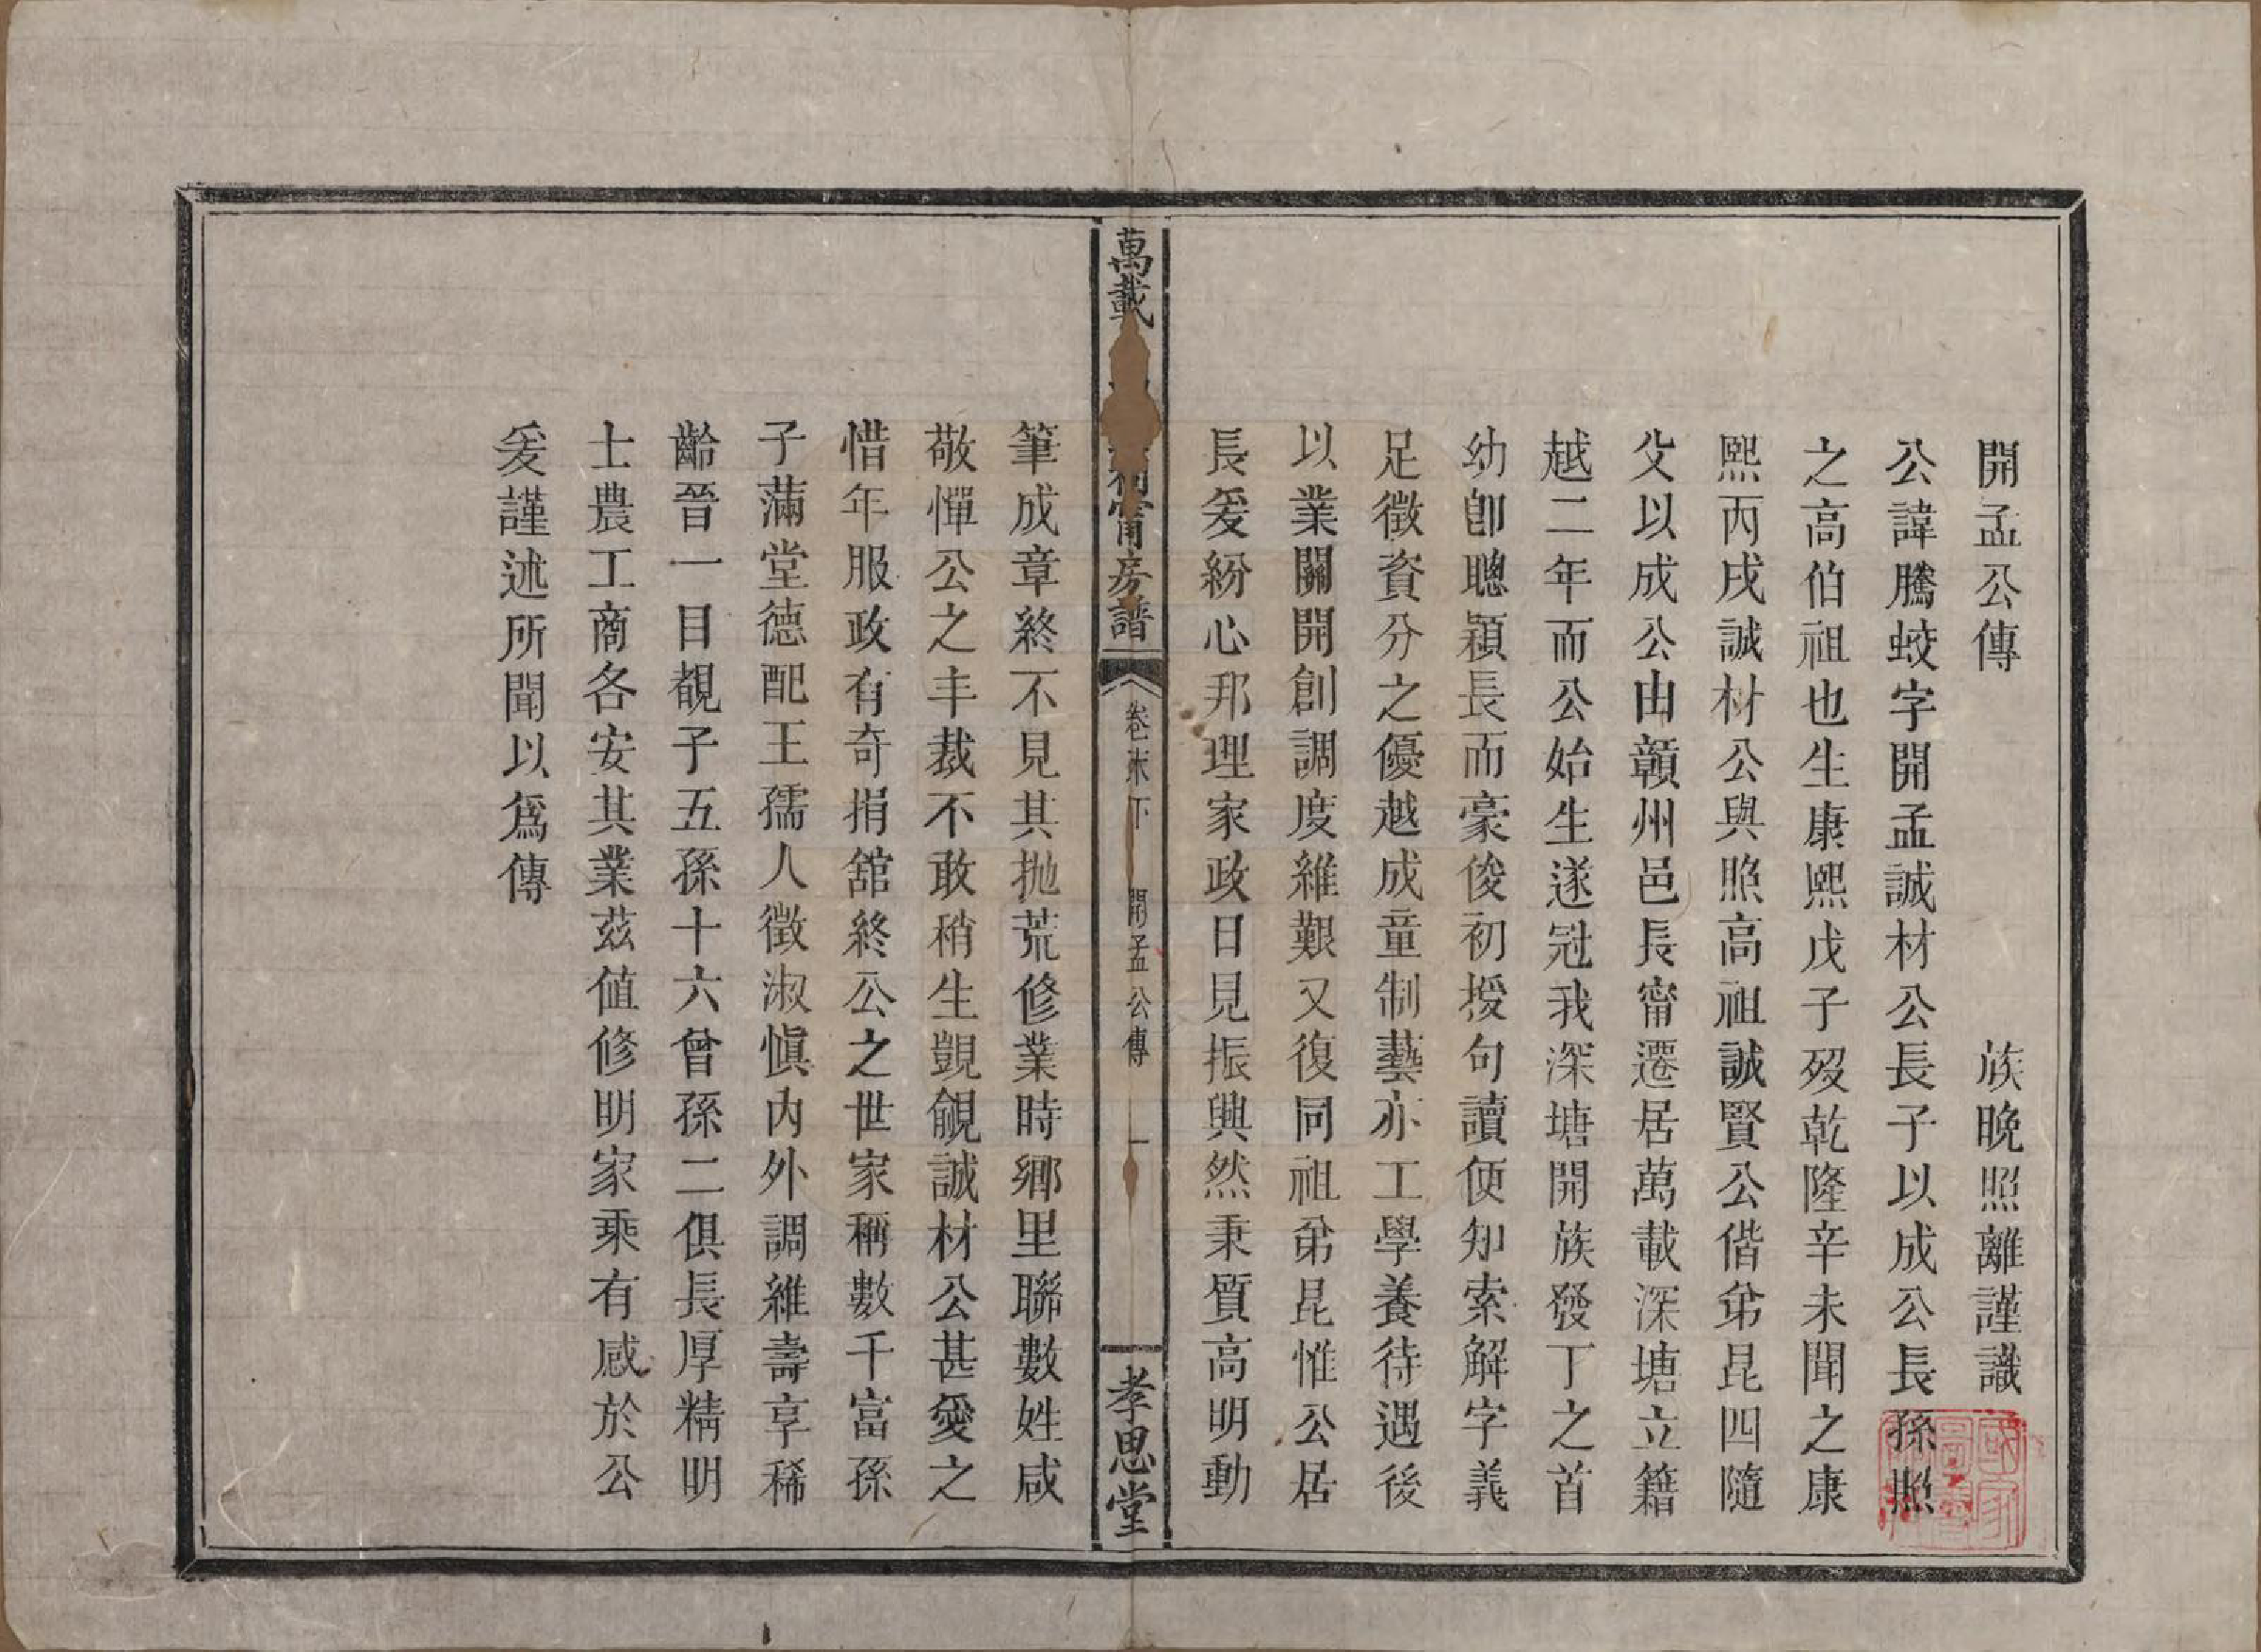 開孟公傳　族晚照離謹識
公諱騰蛟字開孟誠材公長子以成公長孫照
之高伯祖也生康熙戊子歿乾隆辛未聞之康
熙丙戌誠材公與照高祖誠賢公偕弟昆四隨
父以成公由贛州邑長甯遷居萬載深塘立籍
越二年而公始生遂冠我深塘開族發丁之首
幼卽聰穎長而豪俊初授句讀便知索解字義
足徵資分之優越成童制藝亦工學養待遇後
以業關開創調度維艱又復同祖弟昆惟公居
長爰紛心邦理家政日見振興然秉質高明動
萬載 甯房譜
卷末下
開孟公傳
一
孝思堂
筆成章終不見其拋荒修業時鄉里聯數姓咸
敬憚公之丰裁不敢稍生覬覦誠材公甚愛之
惜年服政有奇捐舘終公之世家稱數千富孫
子滿堂德配王孺人徵淑慎內外調維壽享稀
齡晉一目覩子五孫十六曾孫二俱長厚精明
士農工商各安其業茲值修明家乘有感於公
爰謹述所聞以爲傳